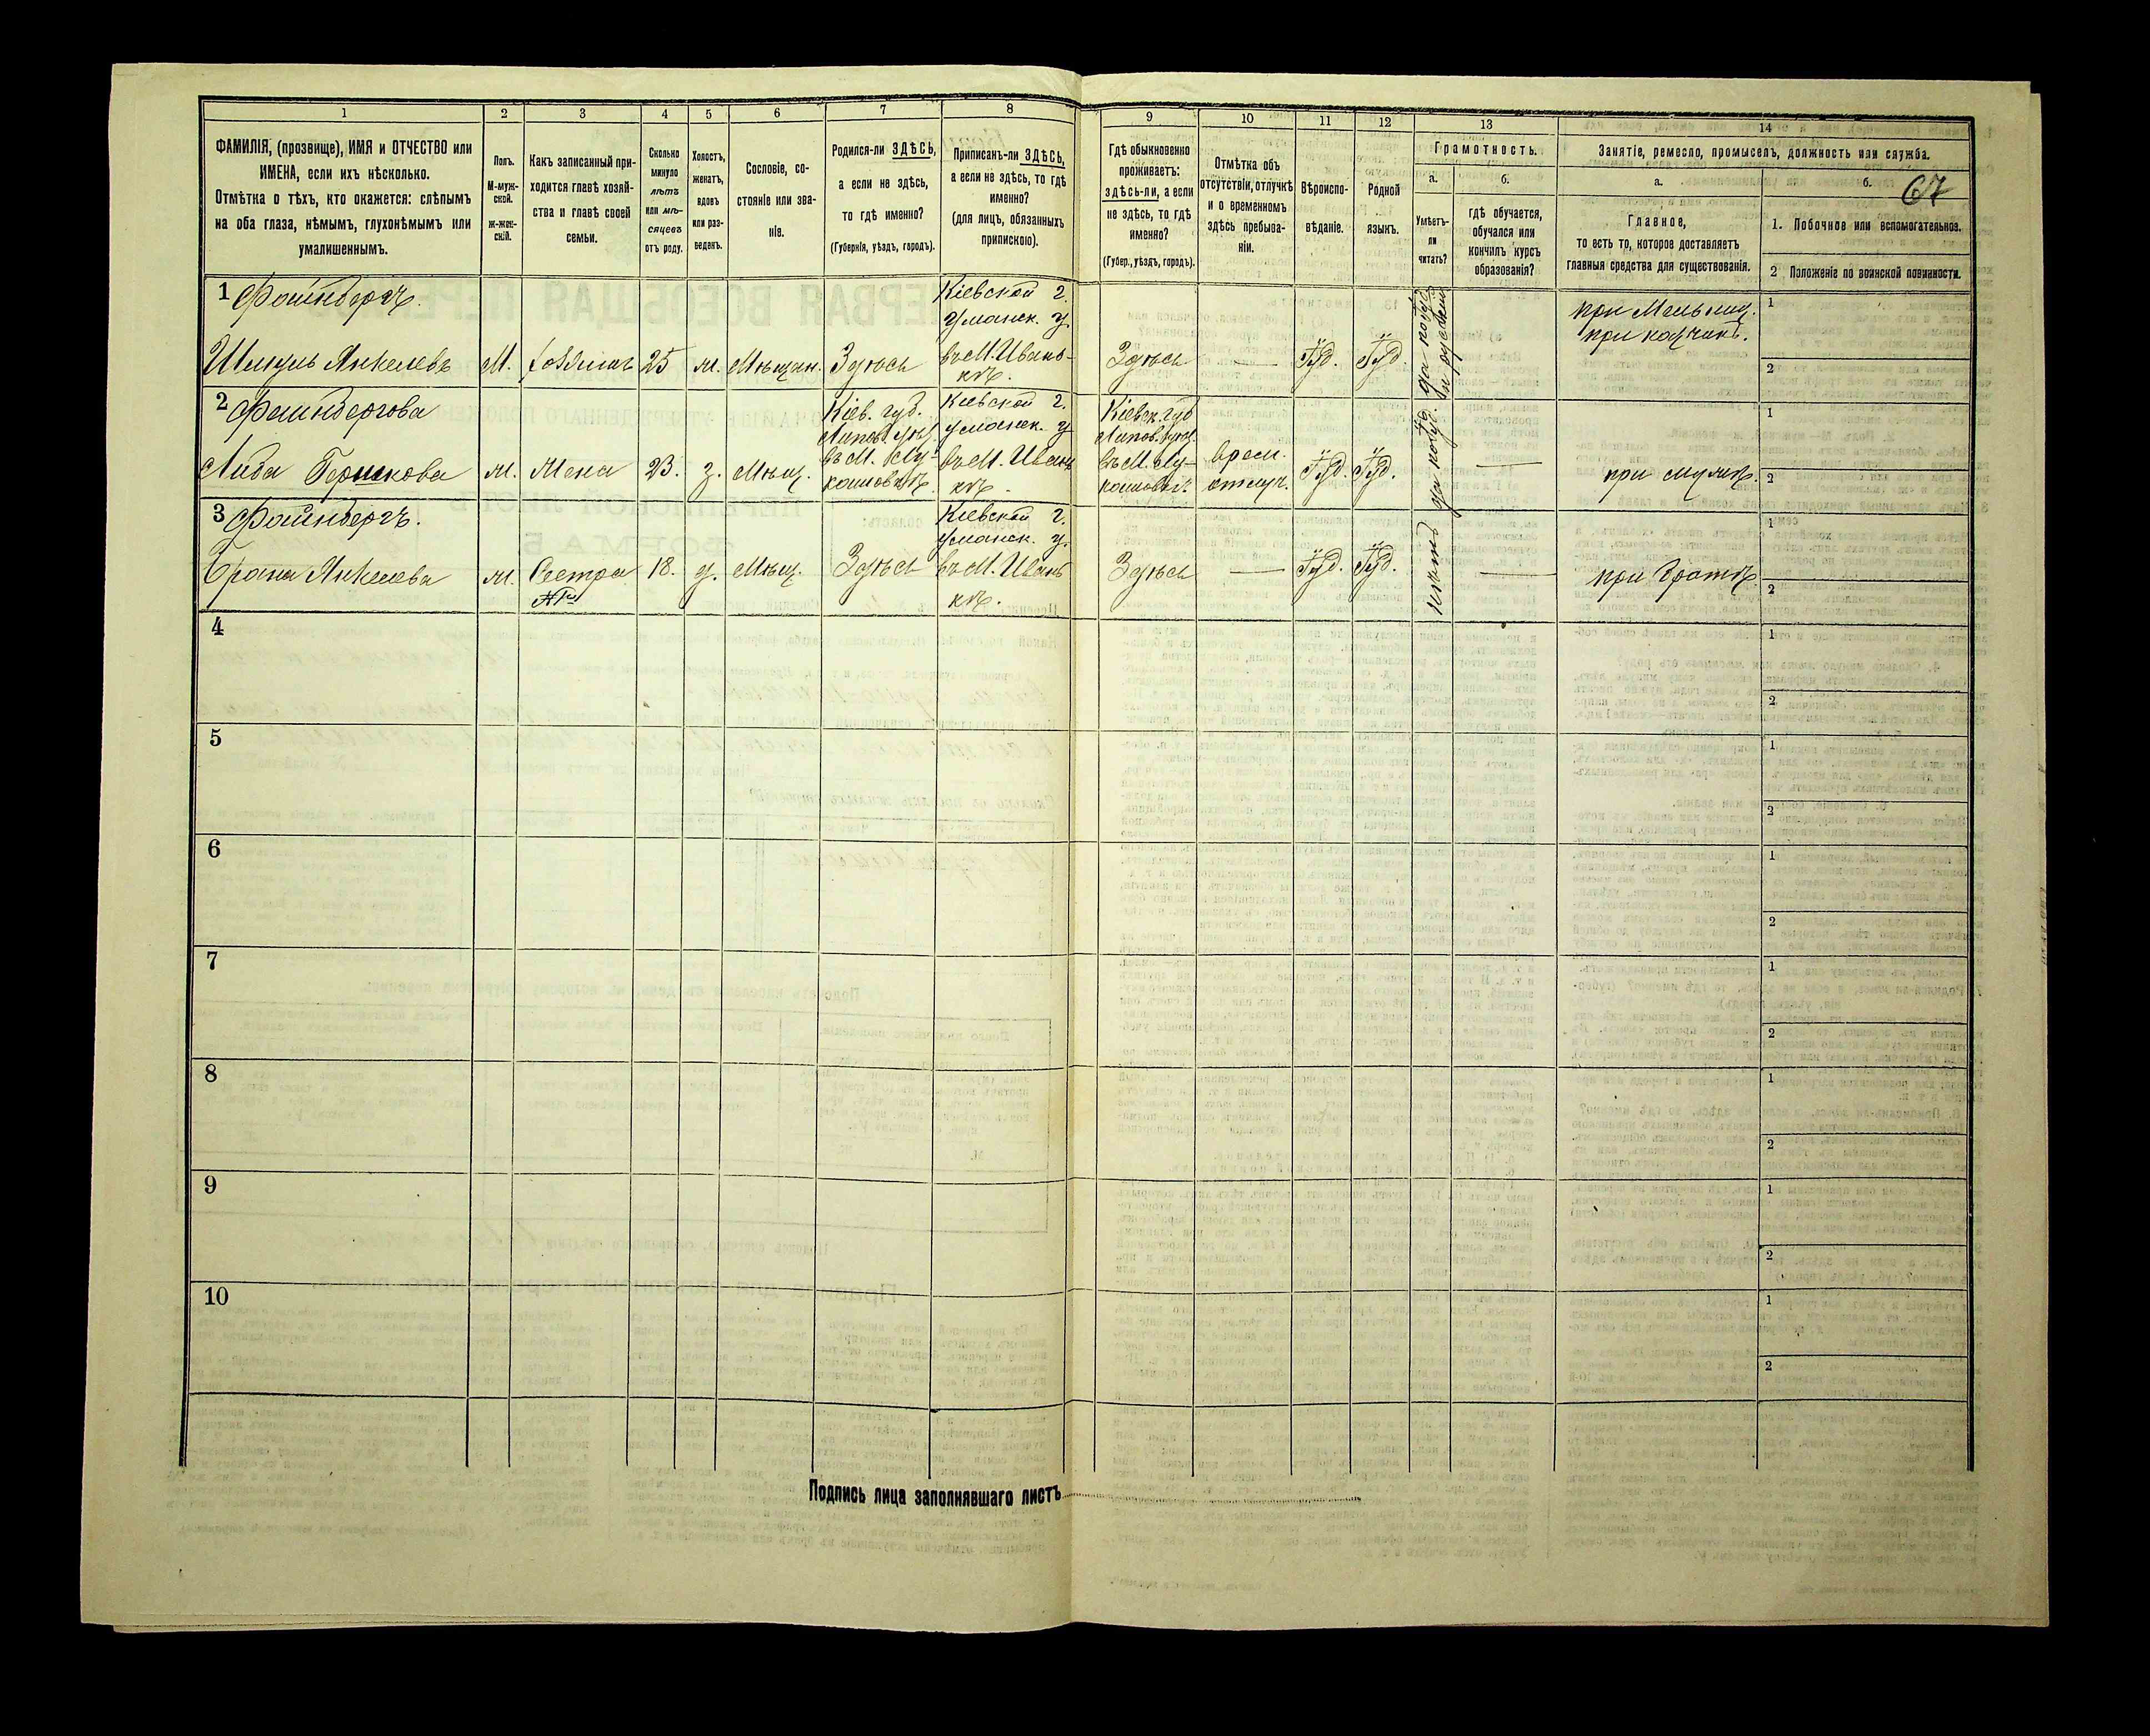 67
1 2 3 4 5 6 7 8 9 10 11 12 13 14
ФАМИЛІЯ, (прозвище), ИМЯ и ОТЧЕСТВО или
ИМЕНА, если ихъ нѣсколько.
Отмѣтка о тѣхъ, кто окажется: слѣпымъ
на оба глаза, нѣмымъ, глухонѣмымъ или
умалишеннымъ.
Полъ.
М-муж-
ской.
ж-жен-
скій.
Какъ записанный при-
ходится главѣ хозяй-
ства и главѣ своей
семьи.
Сколько
минуло
лѣтъ
или мѣ-
сяцевъ
отъ роду.
Холостъ,
женатъ,
вдовъ
или раз-
веденъ.
Сословіе, со-
стояніе или зва-
ніе.
Родился-ли ЗДѢСЬ,
а если не здѣсь,
то гдѣ именно?
(Губернія, уѣздъ, городъ).
Приписанъ-ли ЗДѢСЬ,
а если не здѣсь, то гдѣ
именно?
(для лицъ, обязанныхъ
припискою).
Гдѣ обыкновенно
проживаетъ:
здѣсь-ли, а если
не здѣсь, то гдѣ
именно?
(Губер., уѣздъ, городъ).
Отмѣтка объ
отсутствіи, отлучкѣ
и о временномъ
здѣсь пребыва-
ніи.
Вѣроиспо-
вѣданіе.
Родной
языкъ.
Грамотность.
а.
Умѣетъ-
ли
читать?
б.
гдѣ обучается,
обучался или
кончилъ курсъ
образованія?
Занятіе, ремесло, промыселъ, должность или служба.
а.
Главное,
то есть то, которое доставляетъ
главныя средства для существованія.
б.
1. Побочное или вспомогательное.
2 Положеніе по воинской повинности.
1 Файнбергъ.
Янкелевъ
М.
25
м.
Мѣщан.
Здѣсь
Кіевской г.
Уманск. у.
въ М. Иванъ-
кѣ.
Здѣсь
—
Іуд.
Іуд.
1
2
2 Файнбергова
Либа Бершкова
м.
Жена
23.
з.
Мѣщ.
Кіев. губ.
въ М. Лу-
кашовкѣ.
Кіевской г.
Уманск. у.
въ М. Иванъ
кѣ.
Кіевск. губ
въ М. Лу-
врем.
отлуч.
Іуд.
Іуд.
—
при мужѣ.
1
2
3 Файнбергъ.
Янкелева
м.
Сестра
№ 1
18.
д.
Мѣщ.
Здѣсь
Кіевской г.
Уманск. у.
въ М. Иванъ
кѣ.
Здѣсь
—
Іуд.
Іуд.
—
при братѣ
2
4
1
2
5
1
2
6
1
2
7
1
2
8
1
2
9
1
2
10
1
2
Подпись лица заполнявшаго листъ